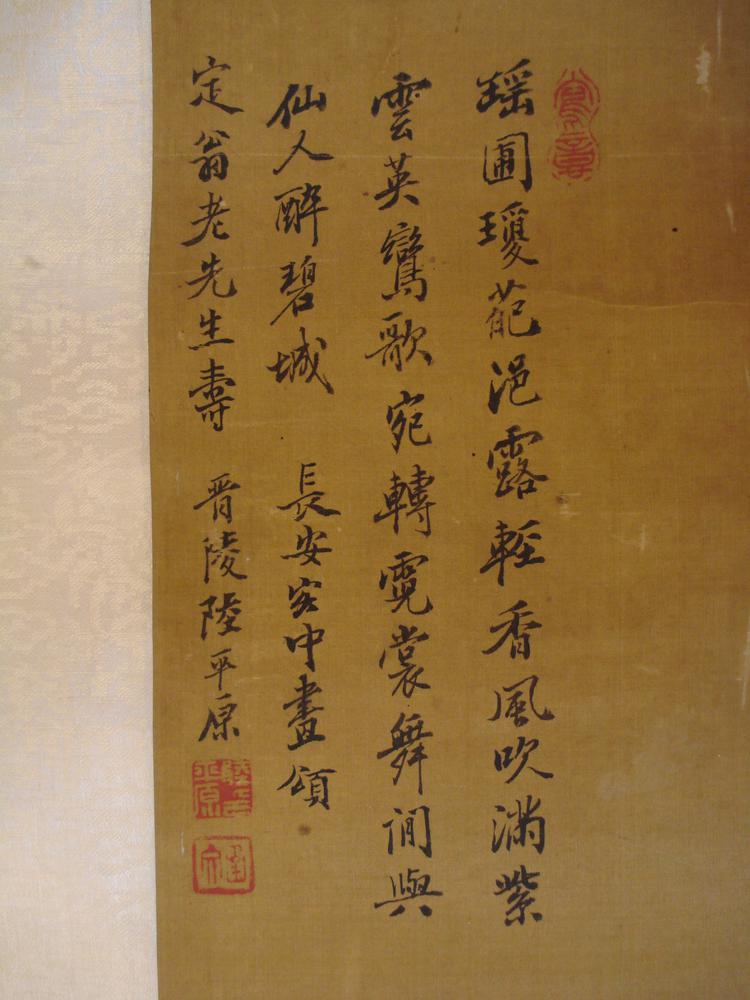 瑶圃瓊葩浥露輕香風吹滿紫
雲英鸞歌宛轉霓裳舞間與
仙人醉碧城 長安客中畫頌
定翁老先生壽 晋陵陸平原